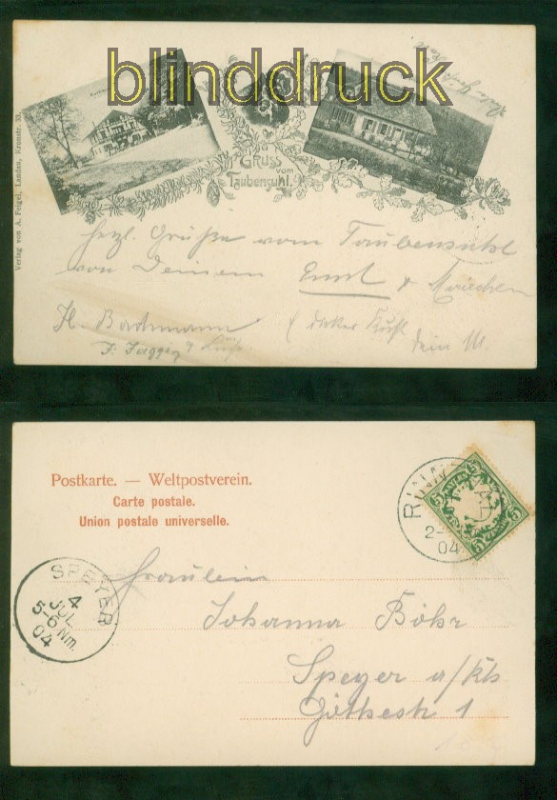 blinddruck.de
Gruss
vom
Taubensuhl.
Verlag von A. Feigel, Landau, Kronstr. 33.
Herzl. Grüße vom Taubensuhl
von Deinem Emil & Mariechen
H. Bachmann
dein M.
Postkarte. — Weltpostverein.
Carte postale.
Union postale universelle.
RINN
2-
04
5
5
5
SPEYER
4
JUL
5-6 Nm.
04
Fräulein
Johanna Böhr
Speyer a/Rh
Göthestr 1